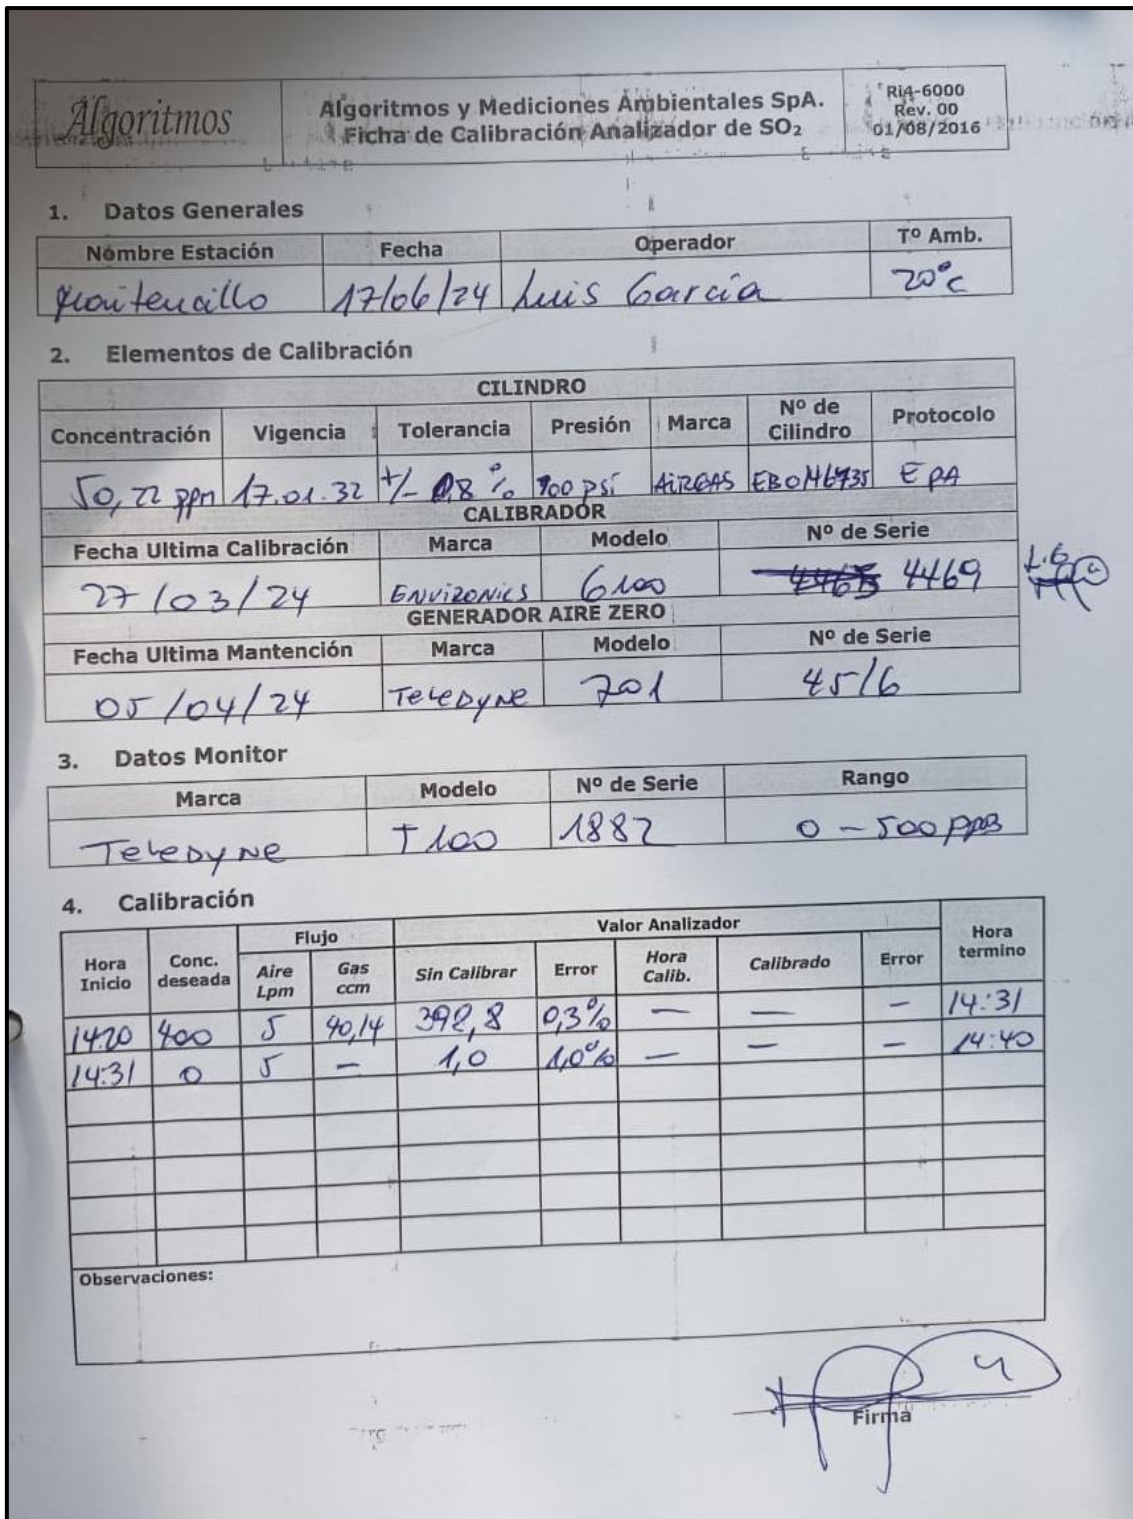 Algoritmos
Algoritmos y Mediciones Ambientales SpA.
Ficha de Calibración Analizador de SO₂
Ri4-6000
Rev. 00
01/08/2016
1. Datos Generales
Nombre Estación Fecha Operador Tº Amb.
17/06/24 Luis García 20°c
2. Elementos de Calibración
CILINDRO
Concentración Vigencia Tolerancia Presión Marca Nº de Cilindro Protocolo
50,22 ppm 17.01.32 +/- 0,8 % psi AiRGAS EPA
CALIBRADOR
Fecha Ultima Calibración Marca Modelo Nº de Serie
27/03/24 ENVIRONICS 6100 4469 L.G
GENERADOR AIRE ZERO
Fecha Ultima Mantención Marca Modelo Nº de Serie
05/04/24 TeLeDyNe 701 4516
3. Datos Monitor
Marca Modelo Nº de Serie Rango
TeLeDyNe T100 1882 0 - 500 ppB
4. Calibración
Hora Inicio Conc. deseada Flujo Valor Analizador Hora termino
Aire Lpm Gas ccm Sin Calibrar Error Hora Calib. Calibrado Error
14:20 400 5 40,14 398,8 0,3% — — — 14:31
14:31 0 5 — 1,0 1,0% — — — 14:40
Observaciones:
Firma